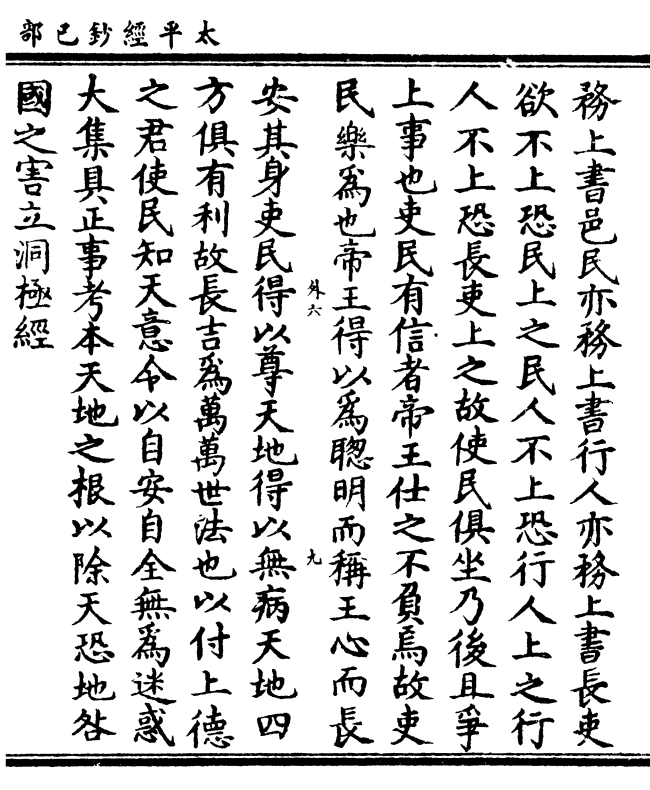 太平經鈔己部
務上書邑民亦務上書行人亦務上書長吏
欲不上恐民上之民人不上恐行人上之行
人不上恐長吏上之故使民俱坐乃後且爭
上事也吏民有信者帝王仕之不負焉故吏
民樂爲也帝王得以爲聰明而稱王心而長
外六
九
安其身吏民得以尊天地得以無病天地四
方俱有利故長吉爲萬萬世法也以付上德
之君使民知天意令以自安自全無爲迷惑
大集具正事考本天地之根以除天恐地咎
國之害立洞極經